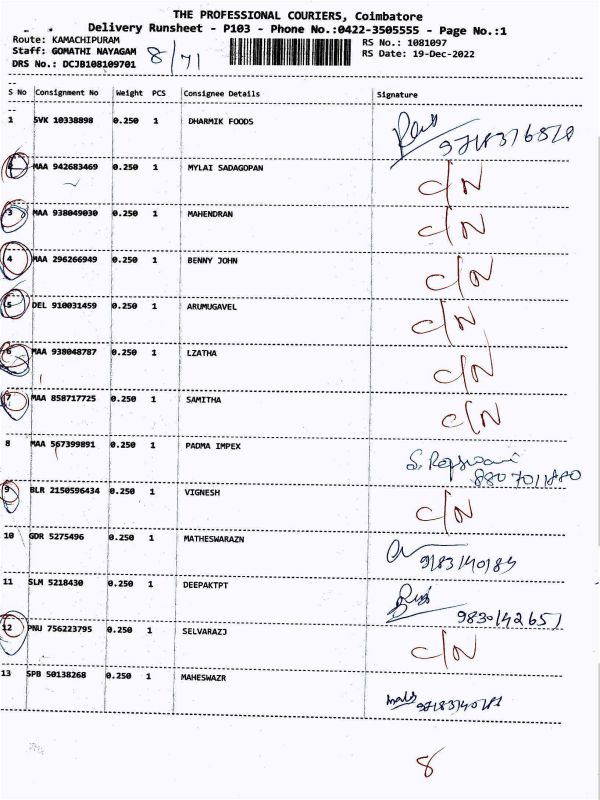 THE PROFESSIONAL COURIERS, Coimbatore
Delivery Runsheet - P103 - Phone No.:0422-3505555 - Page No.:1
Route: KAMACHIPURAM RS No.: 1081097
Staff: GOMATHI NAYAGAM 8/71 RS Date: 19-Dec-2022
DRS No.: DCJB108109701
S No Consignment No Weight PCS Consignee Details Signature
1 SVK 10338898 0.250 1 DHARMIK FOODS
2 MAA 942683469 0.250 1 MYLAI SADAGOPAN C/N
3 MAA 938049030 0.250 1 MAHENDRAN C/N
4 MAA 296266949 0.250 1 BENNY JOHN C/N
5 DEL 910031459 0.250 1 ARUMUGAVEL C/N
6 MAA 938048787 0.250 1 LZATHA C/N
7 MAA 858717725 0.250 1 SAMITHA C/N
8 MAA 567399891 0.250 1 PADMA IMPEX
8807011880
9 BLR 2150596434 0.250 1 VIGNESH C/N
10 GDR 5275496 0.250 1 MATHESWARAZN
11 SLM 5218430 0.250 1 DEEPAKTPT
9830142651
12 PNU 756223795 0.250 1 SELVARAZJ C/N
13 SPB 50138268 0.250 1 MAHESWAZR
8